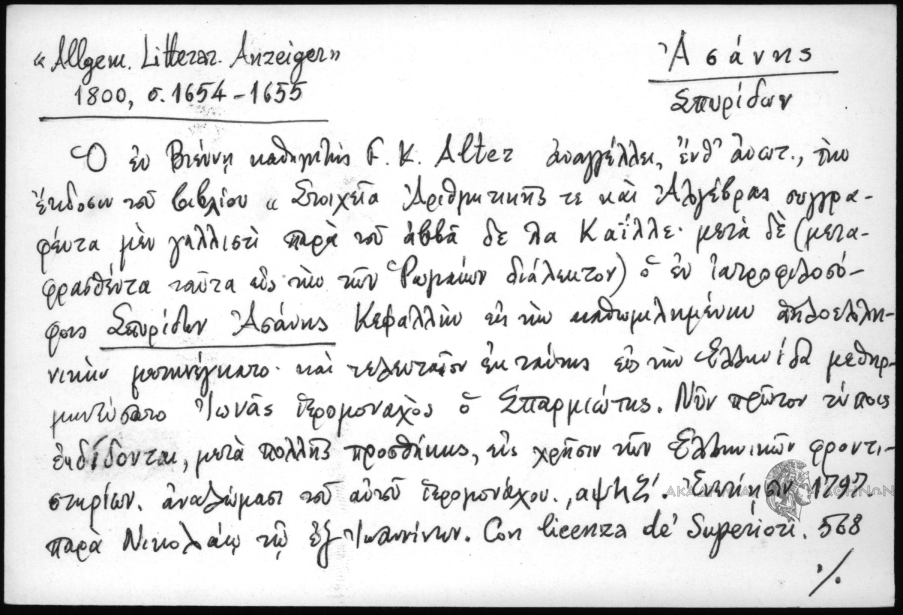 «Allgem. Litterar. Anzeiger»
1800, σ. 1654-1655
Ἀσάνης
Σπυρίδων
Ὁ ἐν Βιέννῃ καθηγητὴς F. K. Alter ἀναγγέλλει, ἔνθ' ἀνωτ., τὴν
ἔκδοσιν τοῦ βιβλίου «Στοιχεῖα Ἀριθμητικῆς τε καὶ Ἀλγέβρας συγγρα-
φέντα μὲν γαλλιστὶ παρὰ τοῦ ἀββᾶ δε λα Καΐλλε· μετὰ δὲ (μετα-
φρασθέντα ταῦτα εἰς τὴν τῶν Ῥωμαίων διάλεκτον) ὁ ἐν ἰατροφιλοσό-
φοις Σπυρίδων Ἀσάνης Κεφαλλὴν εἰς τὴν καθωμιλημένην ἁπλοελλη-
νικὴν μετηνέγκατο· καὶ τελευταῖον ἐκ ταύτης εἰς τὴν Ἑλληνίδα μεθηρ-
μηνεύσατο Ἰωνᾶς ἱερομοναχὸς ὁ Σπαρμιώτης. Νῦν πρῶτον τύποις
ἐκδίδονται, μετὰ πολλῆς προσθήκης, εἰς χρῆσιν τῶν Ἑλληνικῶν φροντι-
στηρίων. ἀναλώμασι τοῦ αὐτοῦ ἱερομονάχου. ͵αψϟζ΄ Ἐνετίησιν 1797
παρὰ Νικολάῳ τῷ ἐξ Ἰωαννίνων. Con licenza de' Superiori. 568
./.
ΑΚΑΔΗΜΙΑ ΑΘΗΝΩΝ